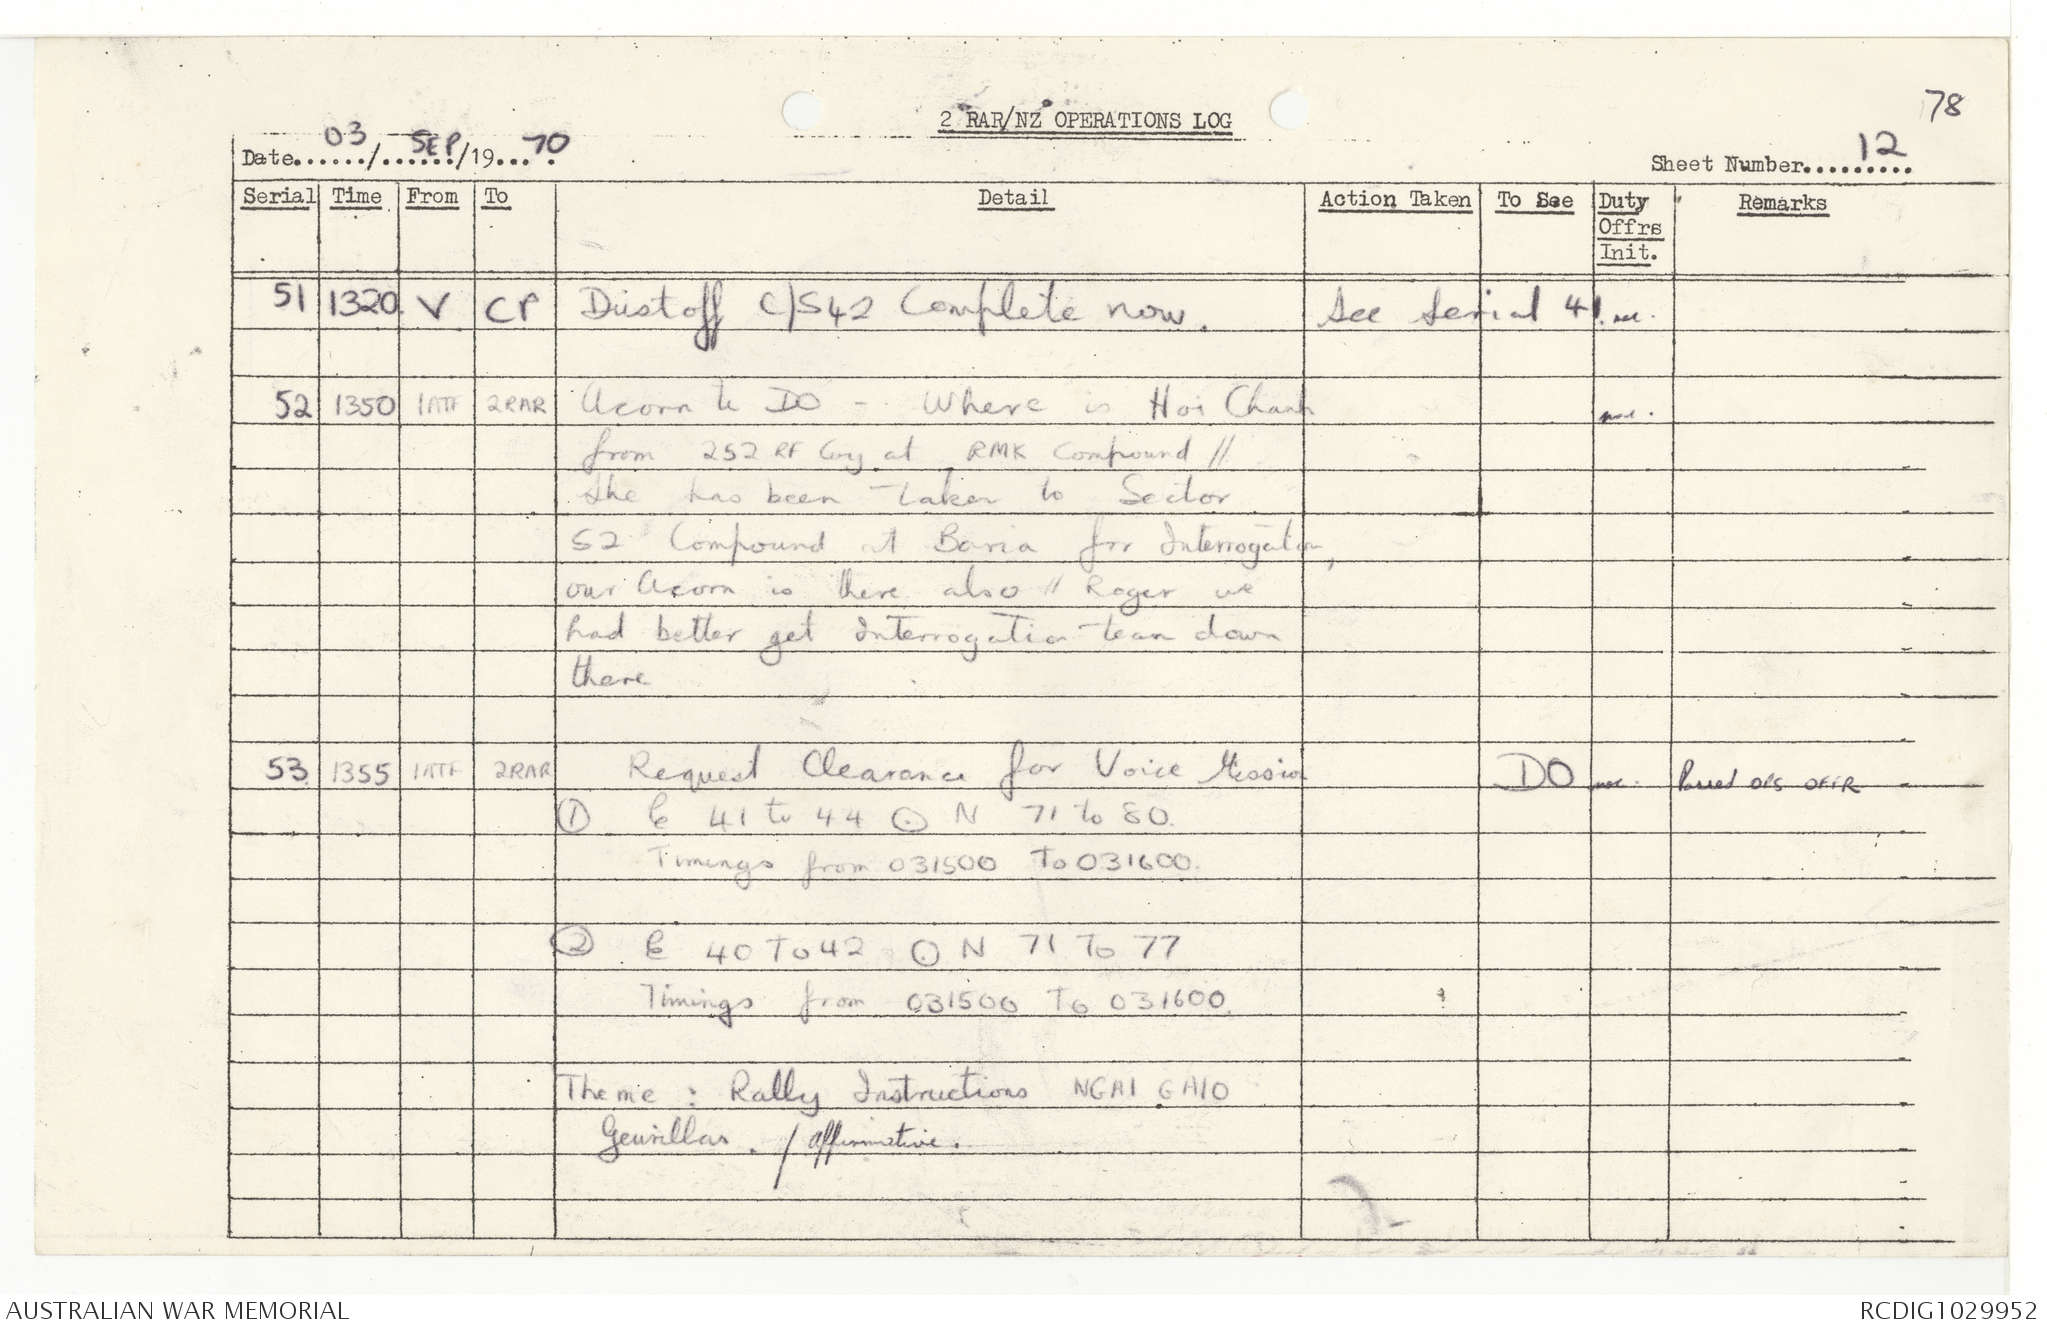 78
2 RAR/NZ OPERATIONS LOG
Date 03/SEP/1970
Sheet Number 12
Serial Time From To Detail Action Taken To See Duty Offrs Init. Remarks
51 1320 V CP Dustoff C/S42 Complete now. See Serial 41
52 1350 1ATF 2RAR Acorn to DO - Where is Hoi Chanh
from 252 RF Coy at RMK Compound //
She has been taken to Sector
S2 Compound at Baria for Interrogation,
our Acorn is there also // Roger we
had better get Interrogation team down
there
53 1355 1ATF 2RAR Request Clearance for Voice Mission DO Passed OPS OFFR
① E 41 to 44 ⊙ N 71 to 80.
Timings from 031500 To 031600.
② E 40 To 42 ⊙ N 71 To 77
Timings from 031500 To 031600.
Theme : Rally Instructions NGAI GAIO
Geurillas. / affirmative.
AUSTRALIAN WAR MEMORIAL
RCDIG1029952